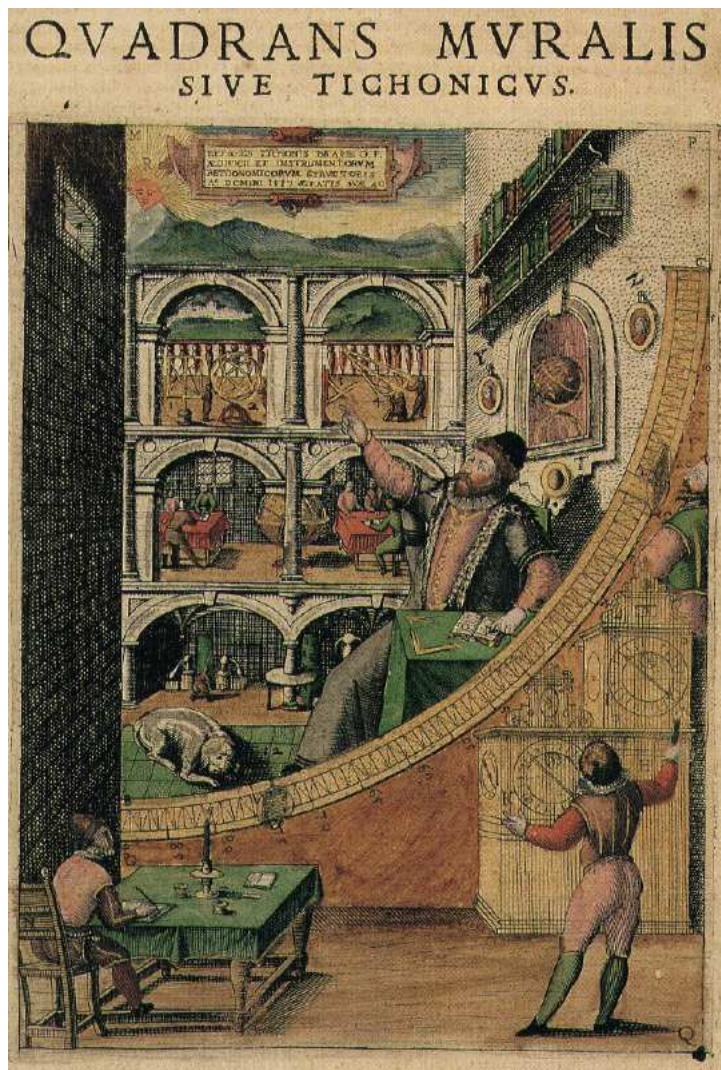 QVADRANS MVRALIS
SIVE TICHONICVS.
M
P
EFFIGIES TICHONIS BRAHE O.F.
ÆDIFICII ET INSTRUMENTORVM
ASTRONOMICORVM STRVCTORIS
A° DOMINI 1587 ÆTATIS SVÆ 40
N
Q